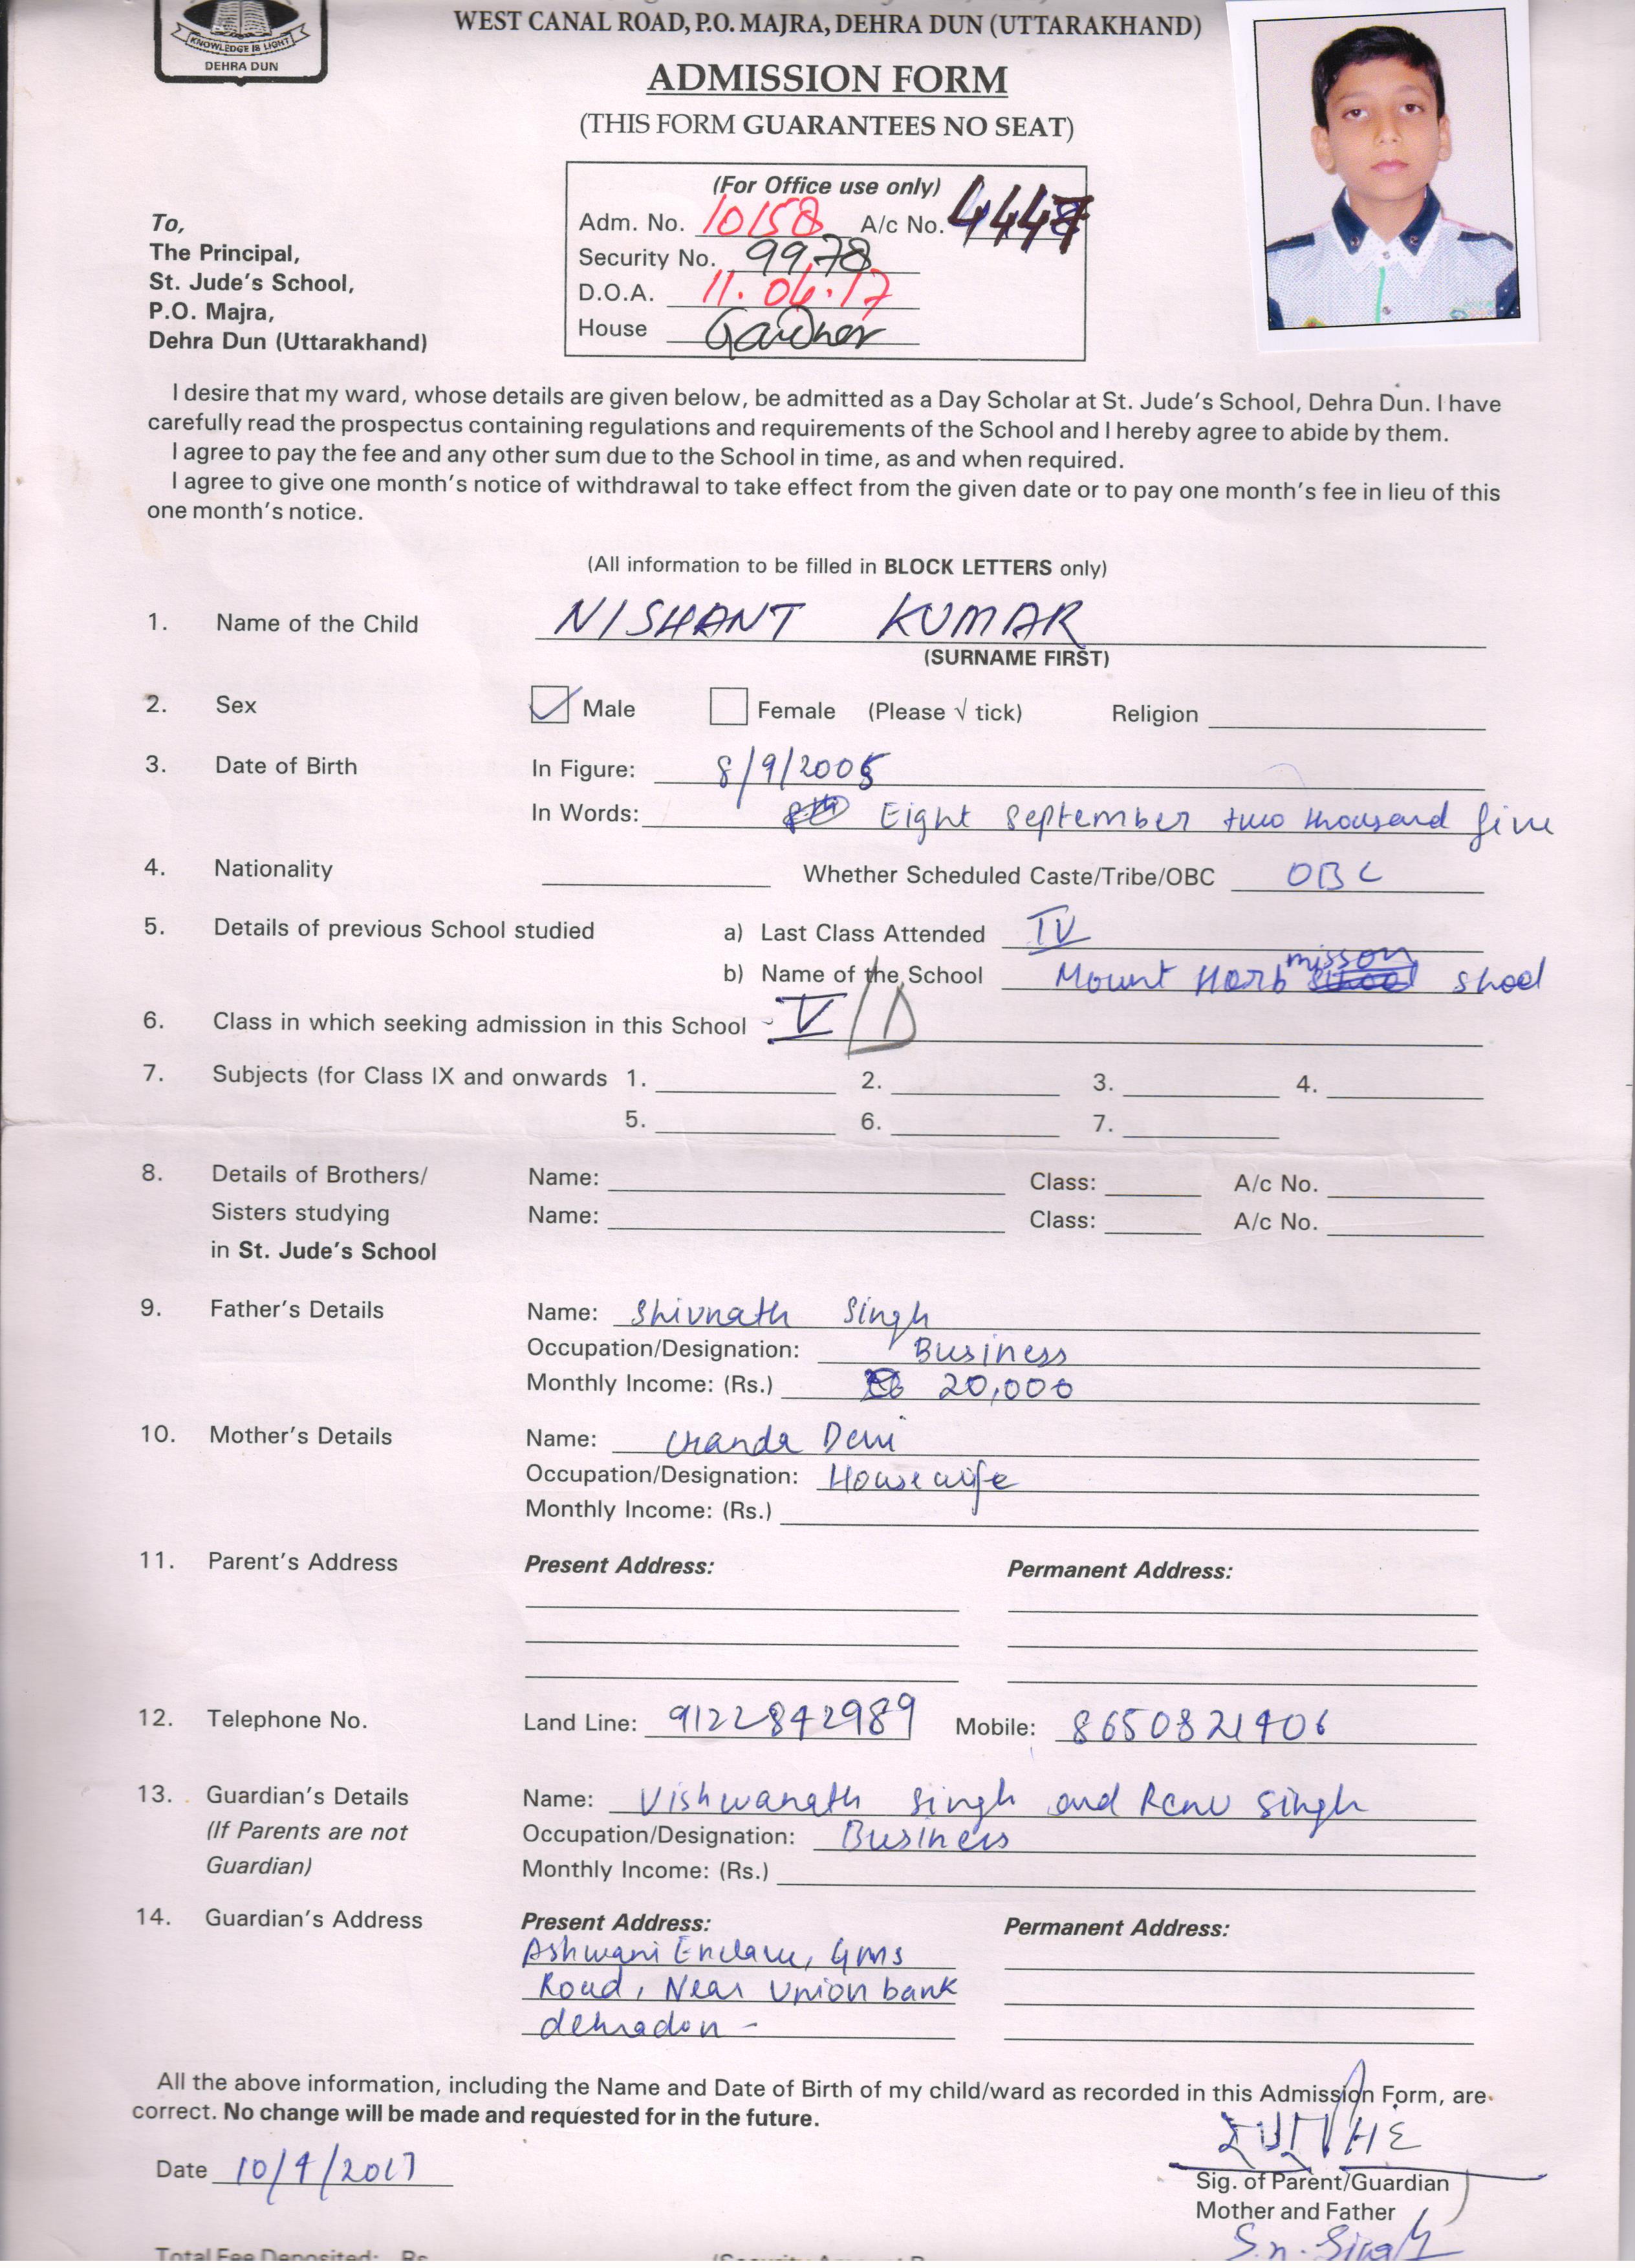 KNOWLEDGE IS LIGHT
DEHRA DUN
WEST CANAL ROAD, P.O. MAJRA, DEHRA DUN (UTTARAKHAND)
ADMISSION FORM
(THIS FORM GUARANTEES NO SEAT)
(For Office use only)
Adm. No. 10158 A/c No. 4447
Security No. 9978
D.O.A. 11.04.17
House Gardner
To,
The Principal,
St. Jude's School,
P.O. Majra,
Dehra Dun (Uttarakhand)
I desire that my ward, whose details are given below, be admitted as a Day Scholar at St. Jude's School, Dehra Dun. I have
carefully read the prospectus containing regulations and requirements of the School and I hereby agree to abide by them.
I agree to pay the fee and any other sum due to the School in time, as and when required.
I agree to give one month's notice of withdrawal to take effect from the given date or to pay one month's fee in lieu of this
one month's notice.
(All information to be filled in BLOCK LETTERS only)
1. Name of the Child NISHANT KUMAR
(SURNAME FIRST)
2. Sex Male Female (Please √ tick) Religion
3. Date of Birth In Figure: 8/9/2005
In Words: Eight September two thousand five
4. Nationality Whether Scheduled Caste/Tribe/OBC OBC
5. Details of previous School studied a) Last Class Attended IV
b) Name of the School Mount Horb misson shool
6. Class in which seeking admission in this School V/D
7. Subjects (for Class IX and onwards 1. 2. 3. 4.
5. 6. 7.
8. Details of Brothers/ Name: Class: A/c No.
Sisters studying Name: Class: A/c No.
in St. Jude's School
9. Father's Details Name: Shivnath Singh
Occupation/Designation: Business
Monthly Income: (Rs.) 20,000
10. Mother's Details Name: Chanda Devi
Occupation/Designation: Housewife
Monthly Income: (Rs.)
11. Parent's Address Present Address: Permanent Address:
12. Telephone No. Land Line: 9122842989 Mobile: 8650821406
13. Guardian's Details Name: Vishwanath Singh and Renu Singh
(If Parents are not Occupation/Designation: Business
Guardian) Monthly Income: (Rs.)
14. Guardian's Address Present Address: Permanent Address:
Ashwani Enclave, GMS
Road, Near Union bank
dehradon -
All the above information, including the Name and Date of Birth of my child/ward as recorded in this Admission Form, are
correct. No change will be made and requested for in the future.
Date 10/4/2017
Sig. of Parent/Guardian
Mother and Father
S.n. Singh
Total Fee Deposited: Rs.